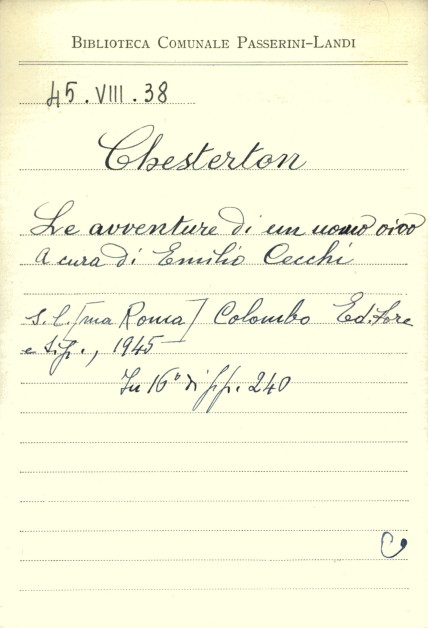 BIBLIOTECA COMUNALE PASSERINI-LANDI
45.VIII.38
Chesterton
Le avventure di un uomo vivo
A cura di Emilio Cecchi
s.l. [ma Roma] Colombo Editore
e tip., 1945
In 16° di pp. 240
C